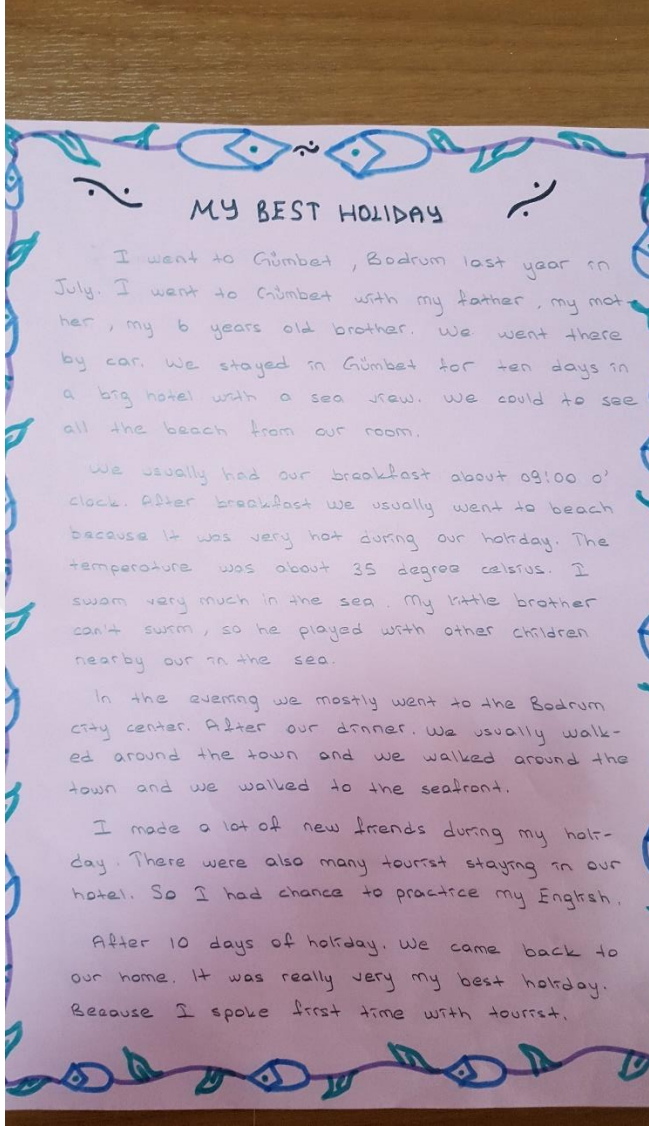 MY BEST HOLIDAY
I went to Gümbet, Bodrum last year in
July. I went to Gümbet with my father, my mot-
her, my 6 years old brother. We went there
by car. We stayed in Gümbet for ten days in
a big hotel with a sea view. We could to see
all the beach from our room.
We usually had our breakfast about 09:00 o'
clock. After breakfast we usually went to beach
because it was very hot during our holiday. The
temperature was about 35 degree celsius. I
swam very much in the sea. My little brother
can't swim, so he played with other children
nearby our in the sea.
In the evening we mostly went to the Bodrum
city center. After our dinner. We usually walk-
ed around the town and we walked around the
town and we walked to the seafront.
I made a lot of new friends during my holi-
day. There were also many tourist staying in our
hotel. So I had chance to practice my English.
After 10 days of holiday. We came back to
our home. It was really very my best holiday.
Because I spoke first time with tourist.